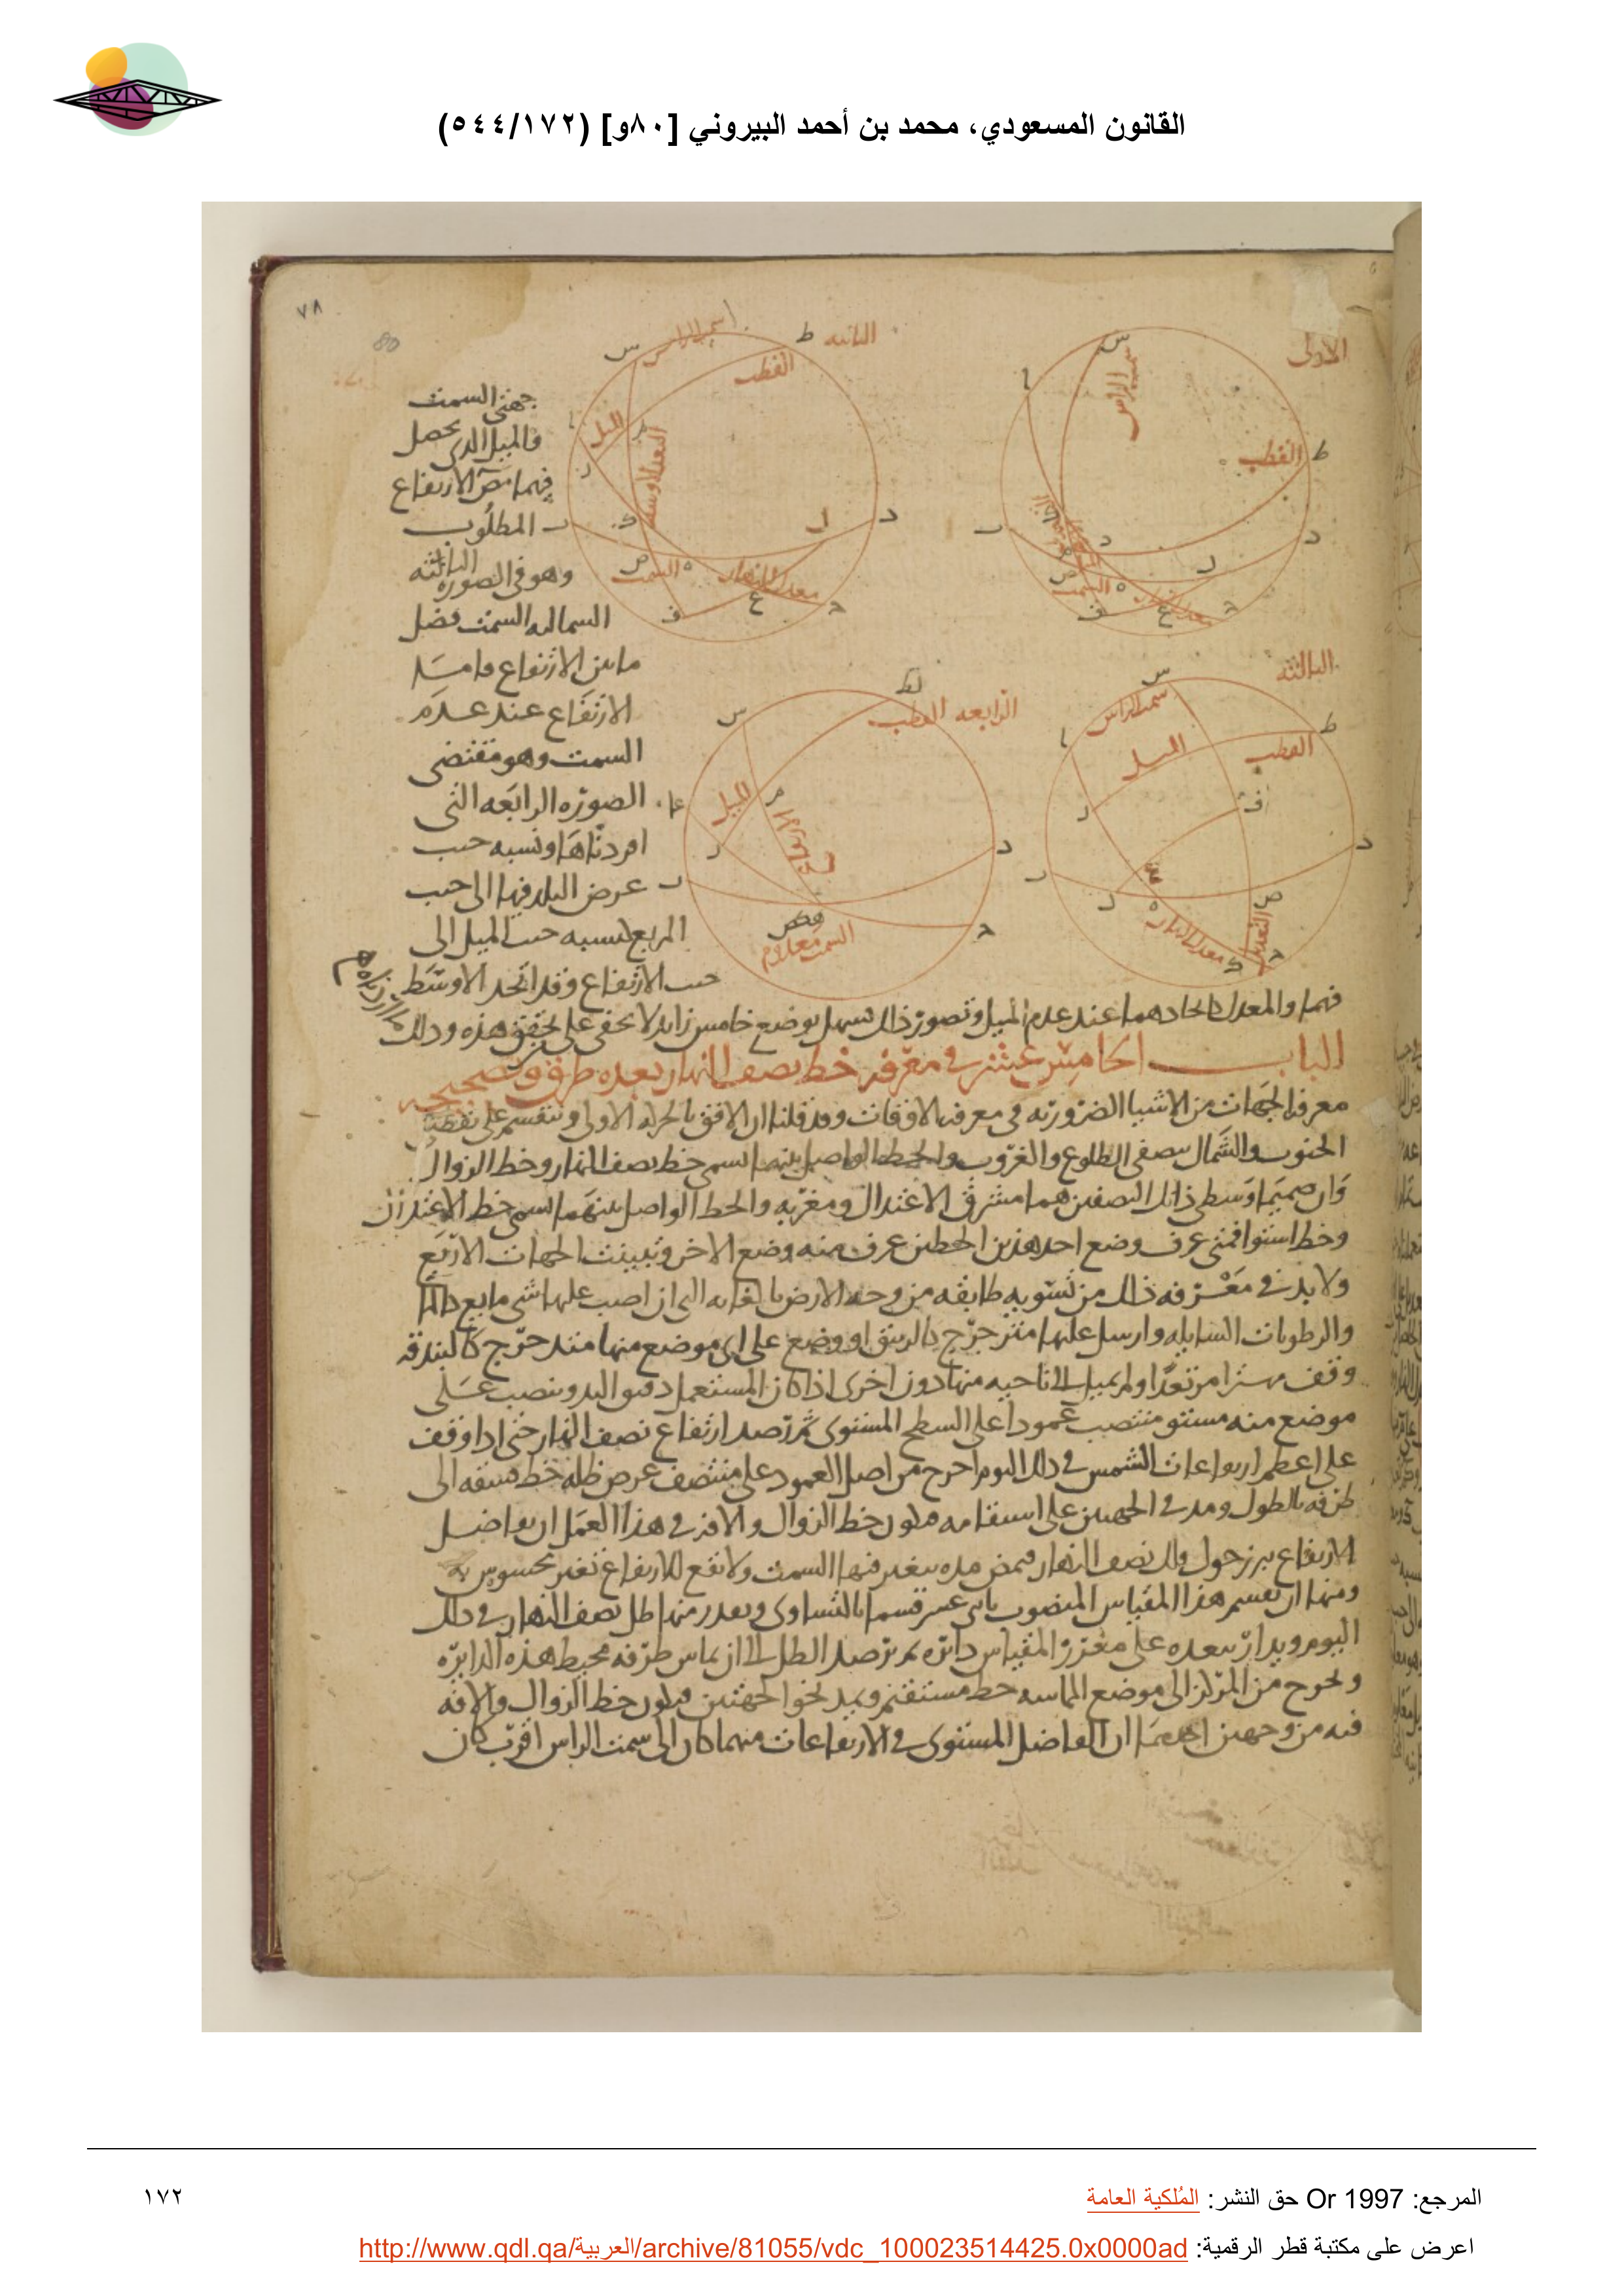 القانون المسعودي، محمد بن أحمد البيروني [٨٠و] (٥٤٤/١٧٢)
٧٨
80
الاولى
س
سمت الراس
ا
القطب
ط
د
ب
ل
ص
السمت
ه
ف
ع
ح
الثانيه
ط
سمت الراس
س
القطب
الميل
م
ر
البعد الاوسط
ل
د
ب
ك
ص
السمت
ه
معدل النهار
ف
ع
ح
الثالثه
س
سمت الراس
ا
ط
القطب
الميل
ر
ف
د
ب
ل
ص
ه
معدل النهار
ح
الرابعه القطب
ط
س
الميل
م
ر
د
ب
ح
السمت معدوم
جهتى السمت
والميل الدى يحصل
فيهما نقص الارتفاع
المطلوب
وهو فى الصوره الثالثه
السماليه السمت فضل
ما بين الارتفاع وما
الارتفاع عند عدم
السمت وهو مقتضى
الصوره الرابعه التى
افردناها ونسبه حىب
عرض البلد فيها الى حىب
المربع كنسبه حىب الميل الى
حىب الارتفاع وقد اتحد الاوسط
فيها والمعدل اتحادهما عند عدم الميل وتصور ذلك سهل بوضع خامس زايد لا يخفى على محقق هذه وذلك ما اردناه
البـاب الخامس عشر فى معرفه خط نصف النهار بعده طرق وتصحيحه
معرفه الجهات من الاشيا الضروريه فى معرفه الافقات وقد قلنا ان الافق بالحركه الاولى وتنقسم على نقطتى
الجنوب والشمال بنصفى الطلوع والغروب والخط الواصل بينهما اسمى خط نصف النهار وخط الزوال
وان صميما وسطى ذانك النصفين هما مشرق الاعتدال ومغربه والخط الواصل بينهما اسمى خط الاعتدال
وخط استوا فمتى عرف وضع احد هذين الخطين عرف منه وضع الاخر وتبينت الجهات الاربع
ولا بد فى معرفه ذلك من تسويه طايفه من وجه الارض بالغايه التى ان اصب عليها شى مايع كالما
والرطوبات السايله وارسل عليها مترجرج كالزيبق او وضع على اى موضع منها متدحرج كالبندقه
وقف مرتعدا ولم يميل الى ناحيه منها دون اخرى اذا كان المستعمل دقيق اليد وينصب على
موضع منه مستو منتصب عمودا على السطح المستوى ثم ترصد ارتفاع نصف النهار حتى اذا وقف
على اعظم ارتفاعات الشمس فى ذلك اليوم اخرج من اصل العمود على منتصف عرض ظله خط منه الى
طرفه بالطول ومد فى الجهتين على استقامه فيكون خط الزوال والافه فى هذا العمل ان تفاضل
الارتفاع ينزر حول فلك نصف النهار فيمض مده يتغير فيها السمت ولا يقع للارتفاع تغير محسوس به
ومنها ان نقسم هذا المقياس المنصوب باثنى عشر قسما بالتساوى ويقدر منها ظل نصف النهار فى ذلك
اليوم ويدار ببعده على مغرز المقياس دائره ثم ترصد الظل الى ان يماس طرفه محيط هذه الدايره
ويخرج من المركز الى موضع المماسه خط مستقيم ويمد نحو الجهتين فيكون خط الزوال والافه
فيه من وجهين احدهما ان الفاضل المستوى فى الارتفاعات مهما كان الى سمت الراس اقرب كان
المرجع: Or 1997 حق النشر: المُلكية العامة
١٧٢
اعرض على مكتبة قطر الرقمية: http://www.qdl.qa/العربية/archive/81055/vdc_100023514425.0x0000ad